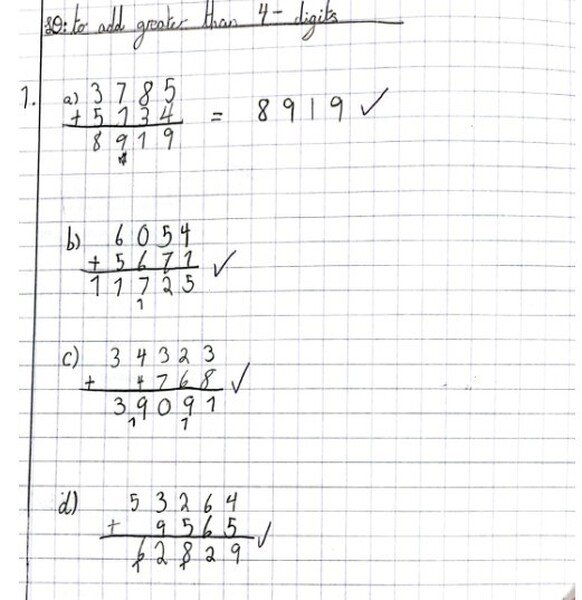 LO: to add greater than 4-digits
1. a) 3 7 8 5
+ 5 1 3 4 = 8 9 1 9 ✓
8 9 1 9
1
b) 6 0 5 4
+ 5 6 7 1 ✓
1 1 7 2 5
1
c) 3 4 3 2 3
+ 4 7 6 8 ✓
3 9 0 9 1
1 1
d) 5 3 2 6 4
+ 9 5 6 5 ✓
6 2 8 2 9
1 1